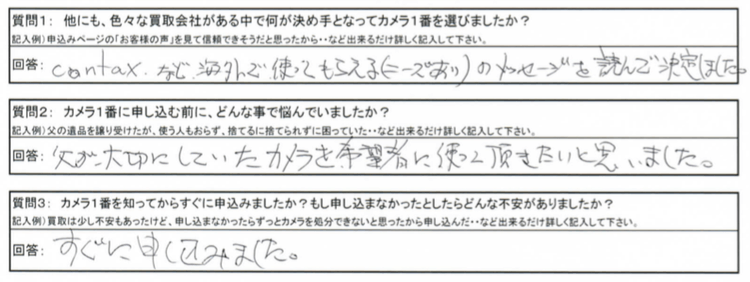 質問1： 他にも、色々な買取会社がある中で何が決め手となってカメラ1番を選びましたか？
記入例）申込みページの「お客様の声」を見て信頼できそうだと思ったから‥など出来るだけ詳しく記入して下さい。
回答： contax．など、海外で使ってもらえる（ニーズあり）のメッセージを読んで決定しました。
質問2： カメラ1番に申し込む前に、どんな事で悩んでいましたか？
記入例）父の遺品を譲り受けたが、使う人もおらず、捨てるに捨てられずに困っていた‥など出来るだけ詳しく記入して下さい。
回答： 父が大切にしていたカメラを希望者に使って頂きたいと思いました。
質問3： カメラ1番を知ってからすぐに申込みましたか？もし申し込まなかったとしたらどんな不安がありましたか？
記入例）買取は少し不安もあったけど、申し込まなかったらずっとカメラを処分できないと思ったから申し込んだ‥など出来るだけ詳しく記入して下さい。
回答： すぐに申し込みました。